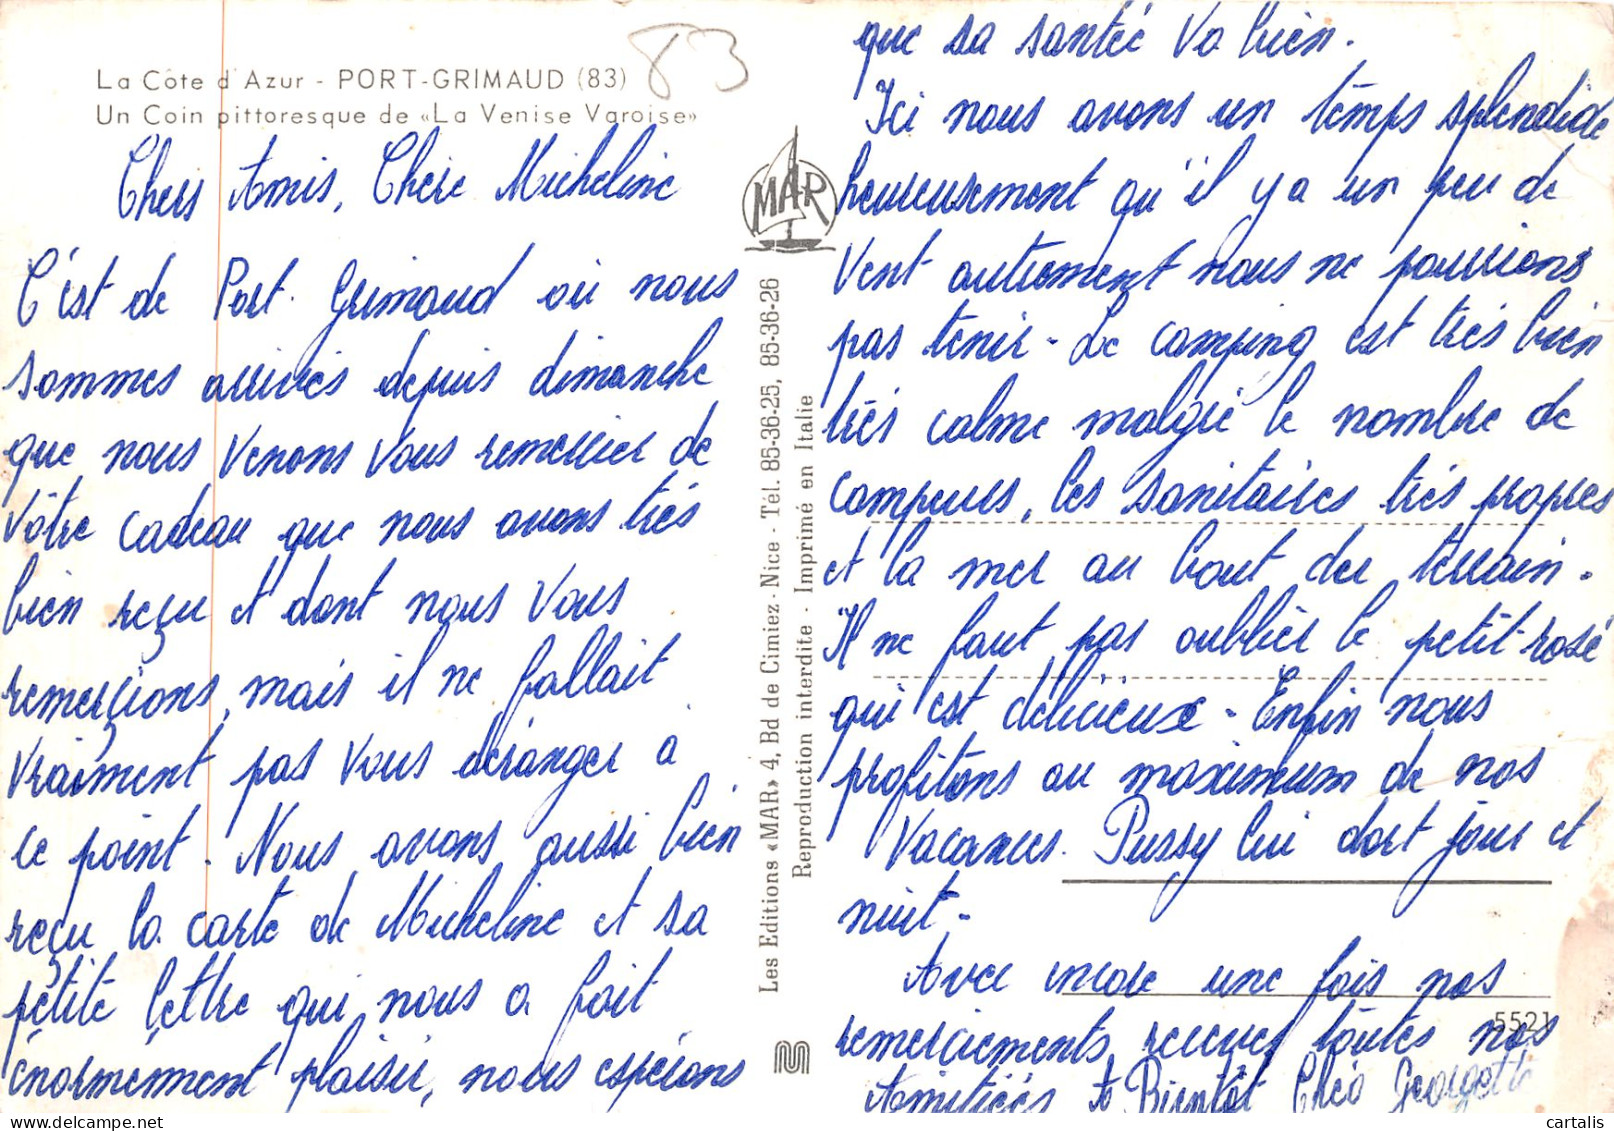 La Côte d'Azur - PORT-GRIMAUD (83)
Un Coin pittoresque de «La Venise Varoise»
83
Chers Amis, Chère Micheline
C'est de Port-Grimaud où nous
sommes arrivés depuis dimanche
que nous venons vous remercier de
vôtre cadeau que nous avons très
bien reçu et dont nous vous
remerçions, mais il ne fallait
vraiment pas vous déranger à
ce point. Nous avons aussi bien
reçu la carte de Micheline et sa
petite lettre qui nous a fait
énormement plaisir, nous espérons
MAR
Les Editions «MAR» 4, Bd de Cimiez - Nice - Tél. 85-36-25, 85-36-26
Reproduction interdite - Imprimé en Italie
que sa santé va bien.
Ici nous avons un temps splendide
heureusement qu'il y a un peu de
vent autrement nous ne pourrions
pas tenir - Le camping est très bien
très calme malgré le nombre de
campeurs, les sanitaires très propres
et la mer au bout du terrain.
Il ne faut pas oublier le petit rosé
qui est délicieux - Enfin nous
profitons au maximum de nos
vacances. Pussy lui dort jour et
nuit -
Avec encore une fois nos
remerciements, recevez toutes nos
Amitiées A Bientôt Théo Georgette
5521